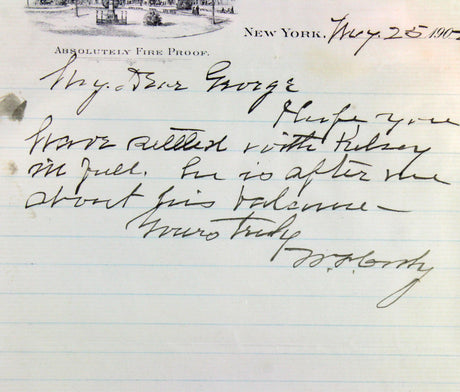 NEW YORK, May 25 190
ABSOLUTELY FIRE PROOF.
My Dear George
I hope you
have settled with Kelsey
in full. he is after me
about his balance –
Yours truly
W. F. Cody